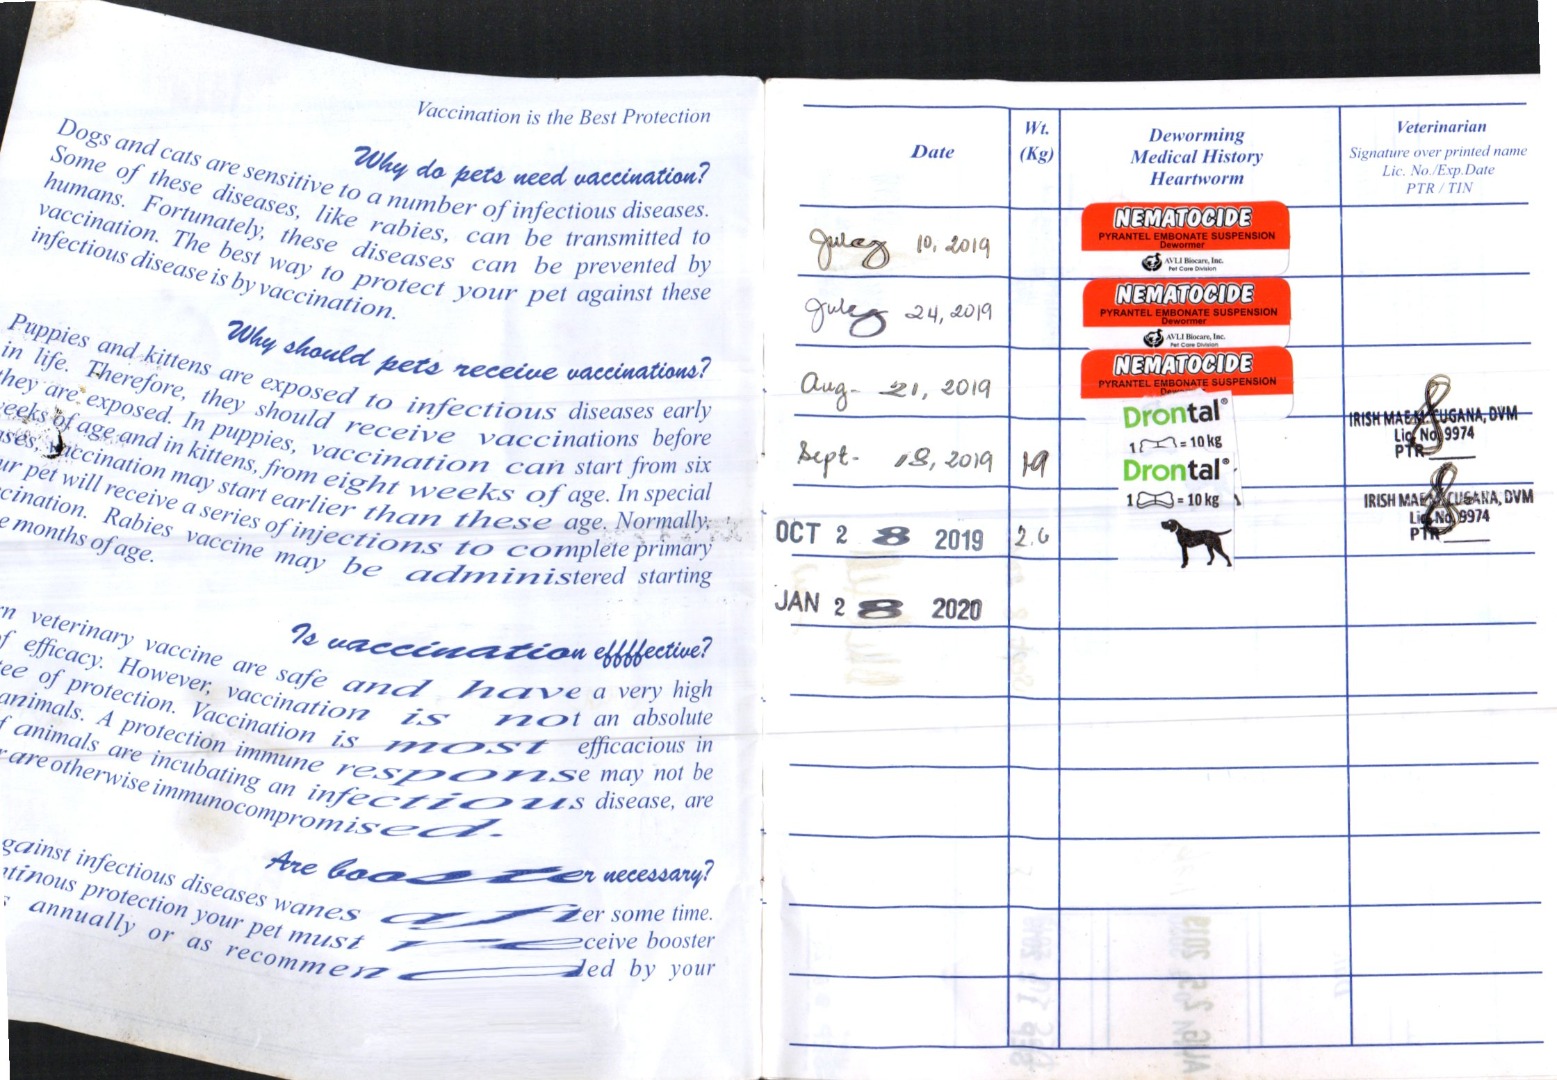 Vaccination is the Best Protection
Why do pets need vaccination?
Dogs and cats are sensitive to a number of infectious diseases.
Some of these diseases, like rabies, can be transmitted to
humans. Fortunately, these diseases can be prevented by
vaccination. The best way to protect your pet against these
infectious disease is by vaccination.
Why should pets receive vaccinations?
Puppies and kittens are exposed to infectious diseases early
in life. Therefore, they should receive vaccinations before
they are exposed. In puppies, vaccination can start from six
weeks of age and in kittens, from eight weeks of age. In special
vaccination may start earlier than these age. Normally,
pet will receive a series of injections to complete primary
Rabies vaccine may be administered starting
months of age.
Is vaccination effffective?
veterinary vaccine are safe and have a very high
of efficacy. However, vaccination is not an absolute
of protection. Vaccination is most efficacious in
animals. A protection immune response may not be
animals are incubating an infectious disease, are
are otherwise immunocompromised.
Are booster necessary?
against infectious diseases wanes after some time.
protection your pet must receive booster
annually or as recommended by your
Date
Wt.
(Kg)
Deworming
Medical History
Heartworm
Veterinarian
Signature over printed name
Lic. No./Exp.Date
PTR / TIN
July 10, 2019
NEMATOCIDE
PYRANTEL EMBONATE SUSPENSION
Dewormer
AVLI Biocare, Inc.
Pet Care Division
July 24, 2019
NEMATOCIDE
PYRANTEL EMBONATE SUSPENSION
Dewormer
AVLI Biocare, Inc.
Pet Care Division
Aug- 21, 2019
NEMATOCIDE
PYRANTEL EMBONATE SUSPENSION
Drontal®
1 = 10 kg
IRISH MAE M. CUGANA, DVM
Lic. No. 9974
PTR
Sept- 18, 2019
19
Drontal®
1 = 10 kg
IRISH MAE M. CUGANA, DVM
Lic. No. 9974
PTR
OCT 28 2019
2.6
JAN 28 2020